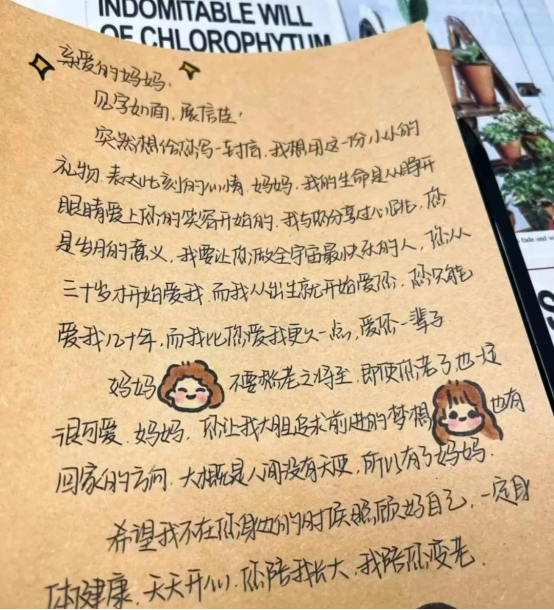 INDOMITABLE WILL
OF CHLOROPHYTUM
亲爱的妈妈:
见字如面,展信佳!
突然想给你写一封信,我想用这一份小小的
礼物,表达此刻的心情,妈妈,我的生命是从睁开
眼睛爱上你的笑容开始的,我与你分享过心跳,你
是岁月的意义,我要让你做全宇宙最快乐的人,你从
三十岁才开始爱我,而我从出生就开始爱你,你只能
爱我几十年,而我比你爱我更久一点,爱你一辈子
妈妈 不要愁老之将至,即使你老了也一定
很可爱,妈妈,你让我大胆追求前进的梦想 也有
回家的方向,大概是人间没有天使,所以有了妈妈.
希望我不在你身边的时候照顾好自己,一定身
体健康,天天开心,你陪我长大,我陪你变老.